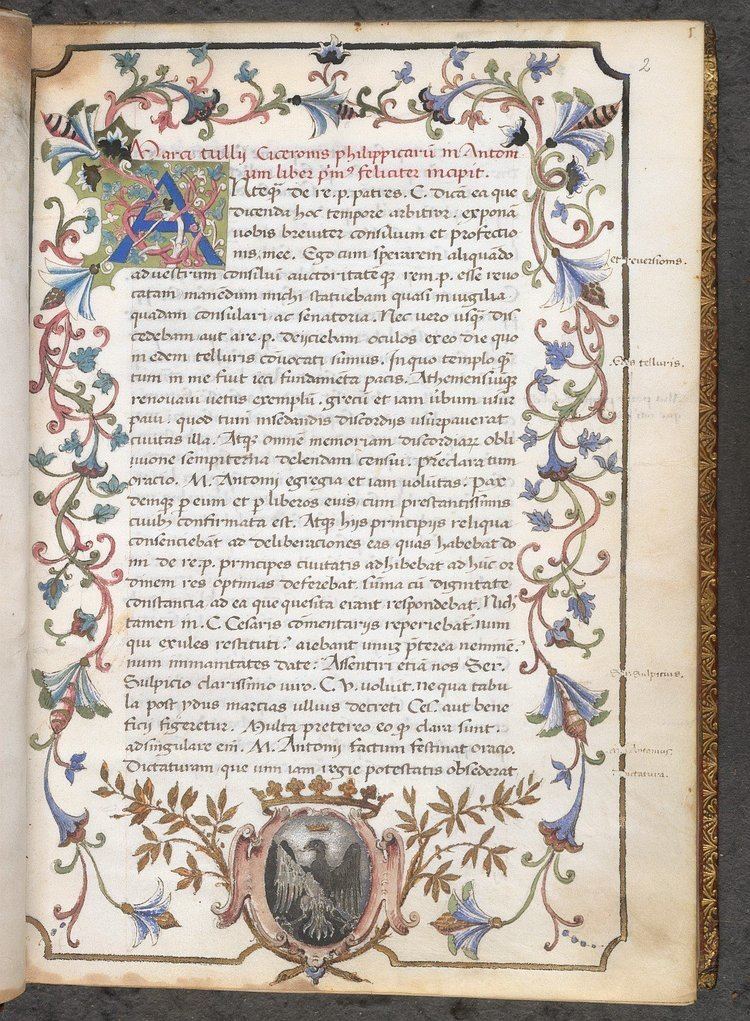 2
Marci tullij Ciceronis philippicarū in Antoni
um liber pⁱmꝰ feliciter incipit.
Anteq̄ᷓ de re.p. patres. C. dicā ea que
dicenda hoc tempore arbitror. exponā
uobis breuiter consilium et profectio
nis, mee. Ego cum sperarem aliquādo
et reuersionis.
ad uestrum consiliū auctoritateq̨ rem.p. esse reuo
catam manēdum michi statuebam quasi in uigilia
quadam consulari ac senatoria. Nec uero usq̄ᷓ dis
cedebam aut a re.p. deijciebam oculos ex eo die quo
in edem telluris conuocati sumus. In quo templo q̄ᷓ
Edes telluris.
tum in me fuit ieci fundamēta pacis. Atheniensiūq̨
renouaui uetus exemplū. grecū et iam ubum usur
paui. quod tum in sedandis discordijs usurpauerat
ciuitas illa. Atq̨ omnē memoriam discordiaꝝ obli
uione sempiterna delendam censui. Preclara tum
oracio. M. Antonij egregia et iam uolūtas. Pax
deniq̨ ꝑ eum et ꝑ liberos eius cum prestantissimis
ciuibꝫ confirmata est. Atq̨ hijs principijs reliqua
consenciebāt ad deliberaciones eas quas habebat do
mi de re.p. principes ciuitatis adhibebat ad huc or
dinem res optimas deferebat. sūma cū dignitate
constancia ad ea que quesita erant respondebat. Nich
tamen in. C. Cesaris comentarijs reperiebat. num
qui exules restituti? aiebant unuꝫ p̄terea nemine.
num immunitates date? Assentiri etiā nos Ser.
Sulpicio clarissimo uiro. C. V. uoluit. ne qua tabu
Ser. Sulpicius.
la post ydus martias ullius decreti Ces. aut bene
ficij figeretur. Multa pretereo eoq̨ clara sunt.
ad singulare em̄. M. Antonij factum festinat oracio.
M. Antonius
Dictaturam que uim iam regie potestatis obsederat
Dictatura.